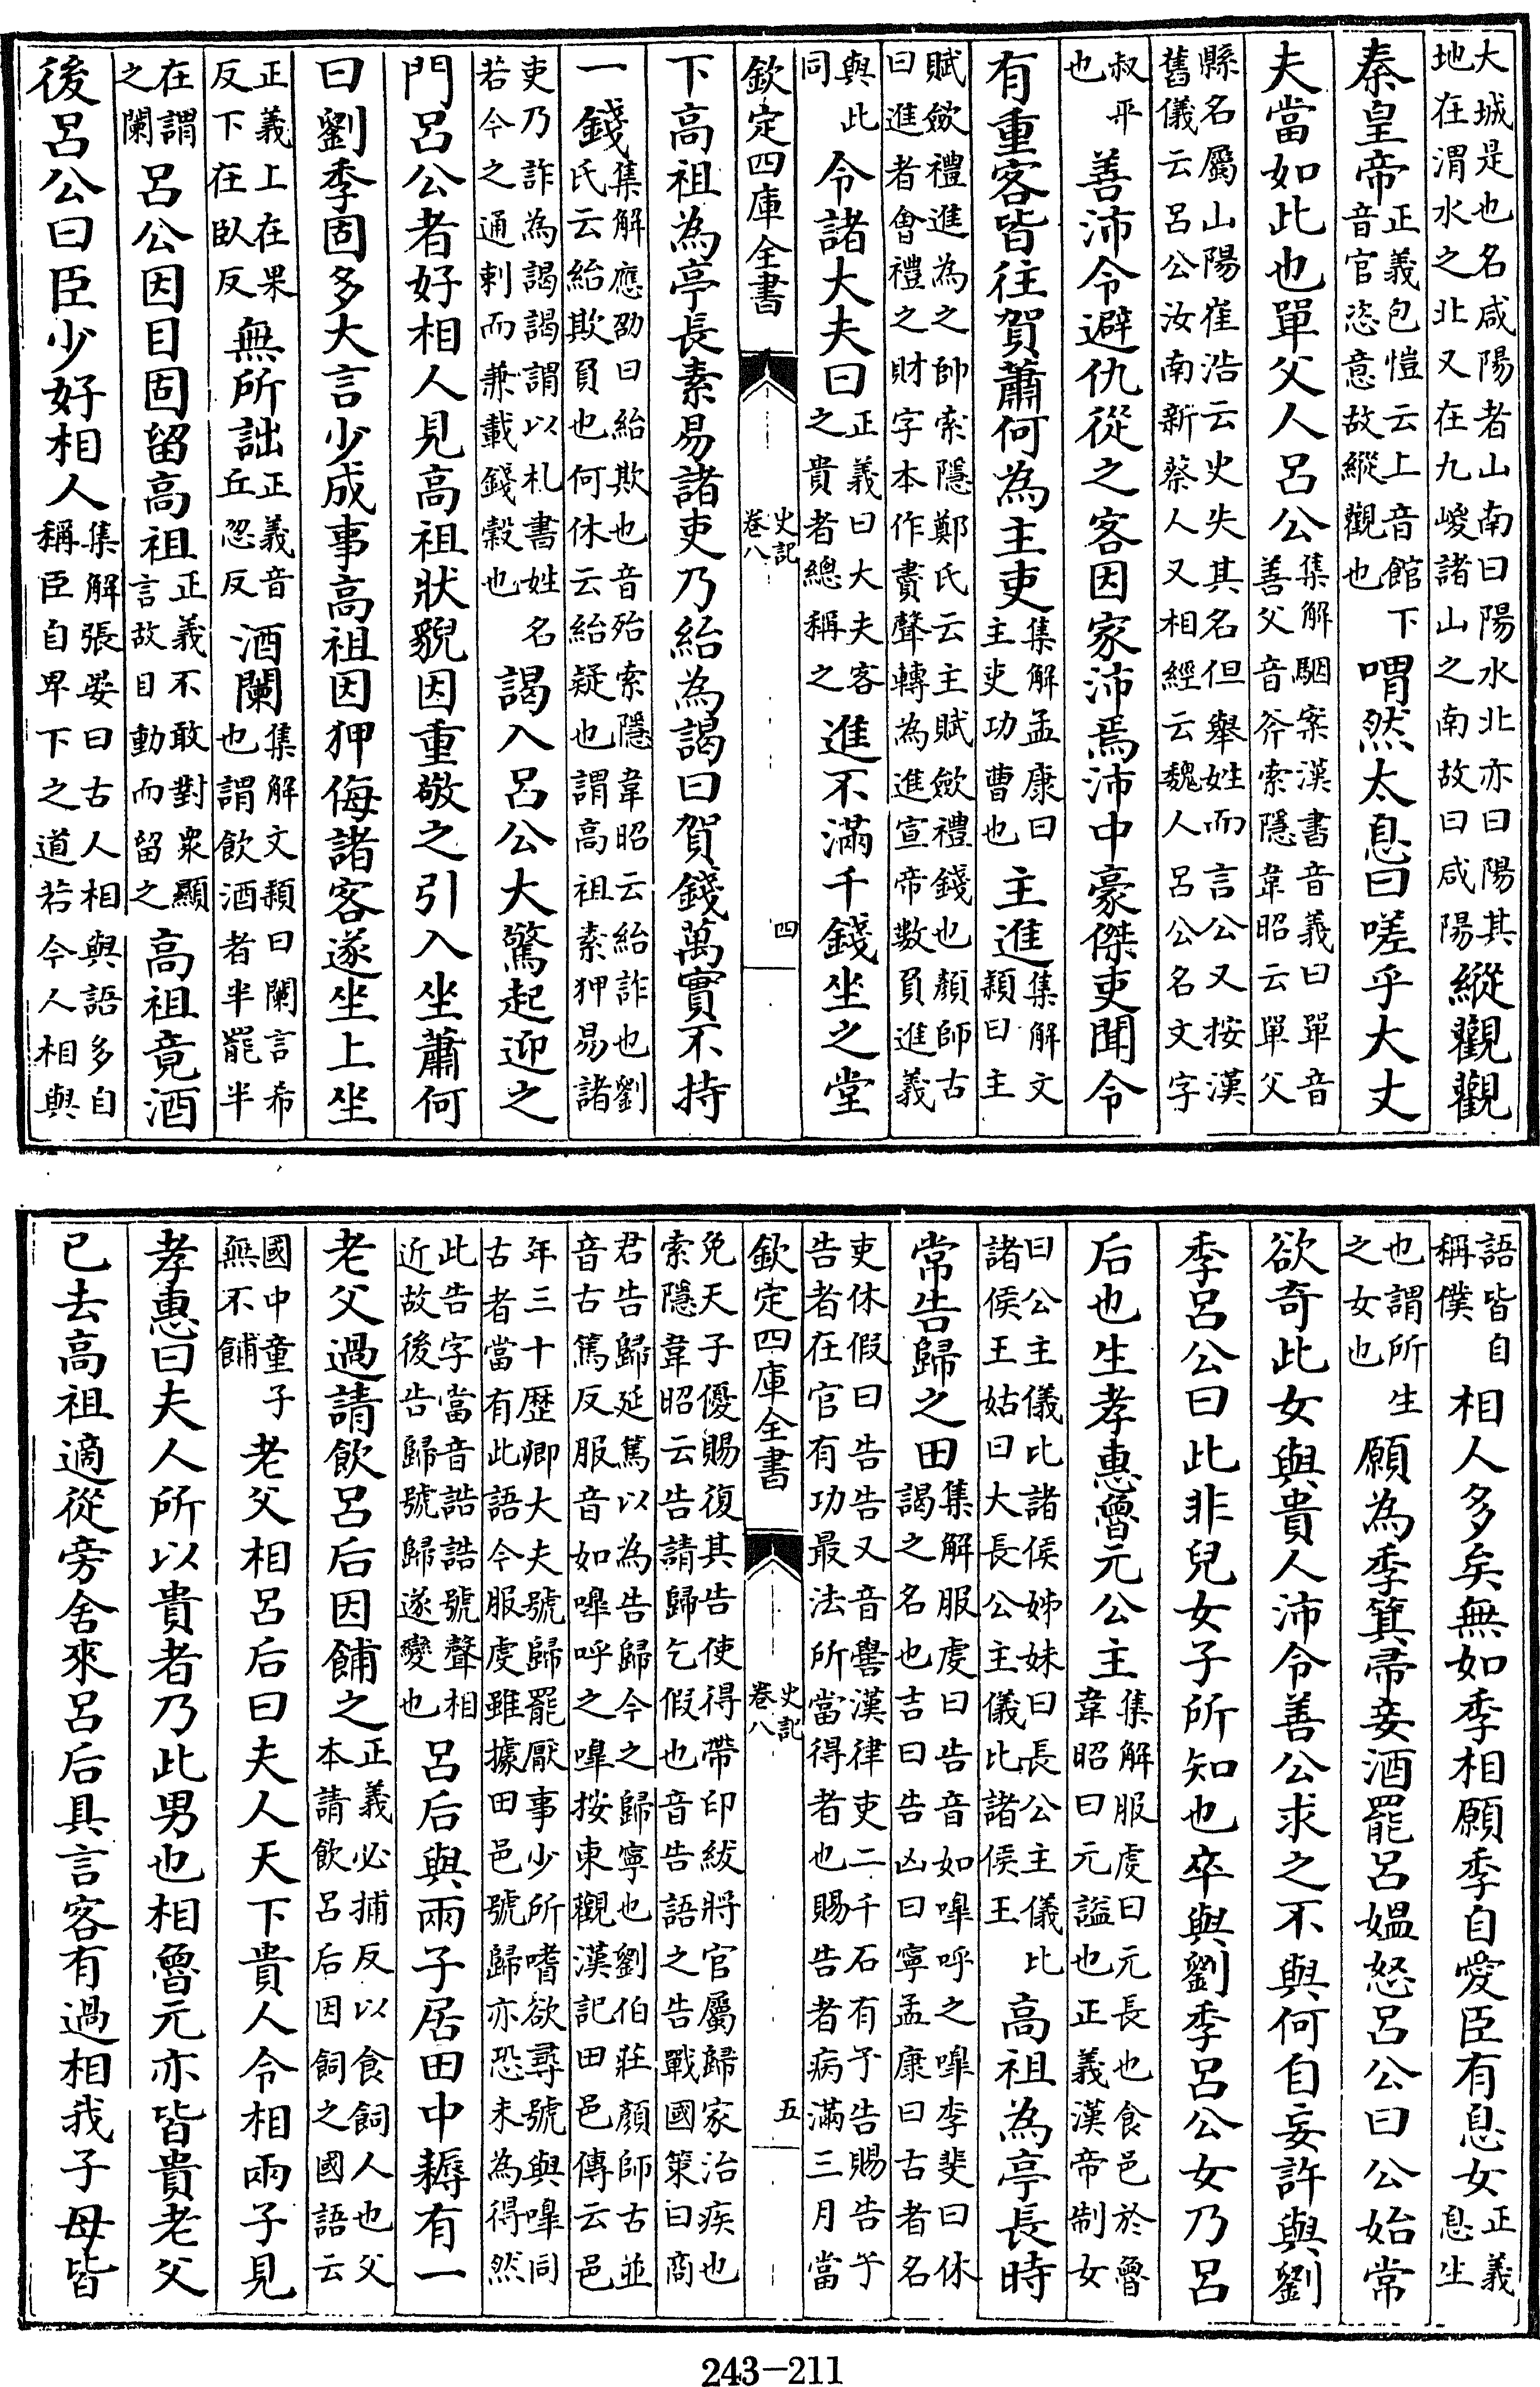 大城是也名咸陽者山南曰陽水北亦曰陽其
地在渭水之北又在九嵕諸山之南故曰咸陽
縱觀觀
秦皇帝
正義包愷云上音館下
音官恣意故縱觀也
喟然太息曰嗟乎大丈
夫當如此也單父人呂公
集解駰案漢書音義曰單音
善父音斧索隱韋昭云單父
縣名屬山陽崔浩云史失其名但舉姓而言公又按漢
舊儀云呂公汝南新蔡人又相經云魏人呂公名文字
叔平
也
善沛令避仇從之客因家沛焉沛中豪傑吏聞令
有重客皆往賀蕭何為主吏
集解孟康曰
主吏功曹也
主進
集解文
穎曰主
賦斂禮進為之帥索隱鄭氏云主賦斂禮錢也顏師古
曰進者會禮之財字本作賮聲轉為進宣帝數負進義
與此
同
令諸大夫曰
正義曰大夫客
之貴者總稱之
進不滿千錢坐之堂
欽定四庫全書
史記
卷八
四
下高祖為亭長素易諸吏乃紿為謁曰賀錢萬實不持
一錢
集解應劭曰紿欺也音殆索隱韋昭云紿詐也劉
氏云紿欺負也何休云紿疑也謂高祖素狎易諸
吏乃詐為謁謁謂以札書姓名
若今之通刺而兼載錢穀也
謁入呂公大驚起迎之
門呂公者好相人見高祖狀貌因重敬之引入坐蕭何
曰劉季固多大言少成事高祖因狎侮諸客遂坐上坐
正義上在果
反下在臥反
無所詘
正義音
丘忽反
酒闌
集解文穎曰闌言希
也謂飲酒者半罷半
在謂
之闌
呂公因目固留高祖
正義不敢對衆顯
言故目動而留之
高祖竟酒
後呂公曰臣少好相人
集解張晏曰古人相與語多自
稱臣自卑下之道若今人相與
語皆自
稱僕
相人多矣無如季相願季自愛臣有息女
正義
息生
也謂所生
之女也
願為季箕帚妾酒罷呂媼怒呂公曰公始常
欲奇此女與貴人沛令善公求之不與何自妄許與劉
季呂公曰此非兒女子所知也卒與劉季呂公女乃呂
后也生孝惠魯元公主
集解服虔曰元長也食邑於魯
韋昭曰元謚也正義漢帝制女
曰公主儀比諸侯姊妹曰長公主儀比
諸侯王姑曰大長公主儀比諸侯王
高祖為亭長時
常告歸之田
集解服虔曰告音如嘷呼之嘷李斐曰休
謁之名也吉曰告凶曰寧孟康曰古者名
吏休假曰告告又音嚳漢律吏二千石有予告賜告予
告者在官有功最法所當得者也賜告者病滿三月當
欽定四庫全書
史記
卷八
五
免天子優賜復其告使得帶印紱將官屬歸家治疾也
索隱韋昭云告請歸乞假也音告語之告戰國策曰商
君告歸延篤以為告歸今之歸寧也劉伯莊顏師古並
音古篤反服音如嘷呼之嘷按東觀漢記田邑傳云邑
年三十歷卿大夫號歸罷厭事少所嗜欲尋號與嘷同
古者當有此語今服虔雖據田邑號歸亦恐未為得然
此告字當音誥誥號聲相
近故後告歸號歸遂變也
呂后與兩子居田中耨有一
老父過請飲呂后因餔之
正義必捕反以食飼人也父
本請飲呂后因飼之國語云
國中童子
無不餔
老父相呂后曰夫人天下貴人令相兩子見
孝惠曰夫人所以貴者乃此男也相魯元亦皆貴老父
已去高祖適從旁舍來呂后具言客有過相我子母皆
243-211